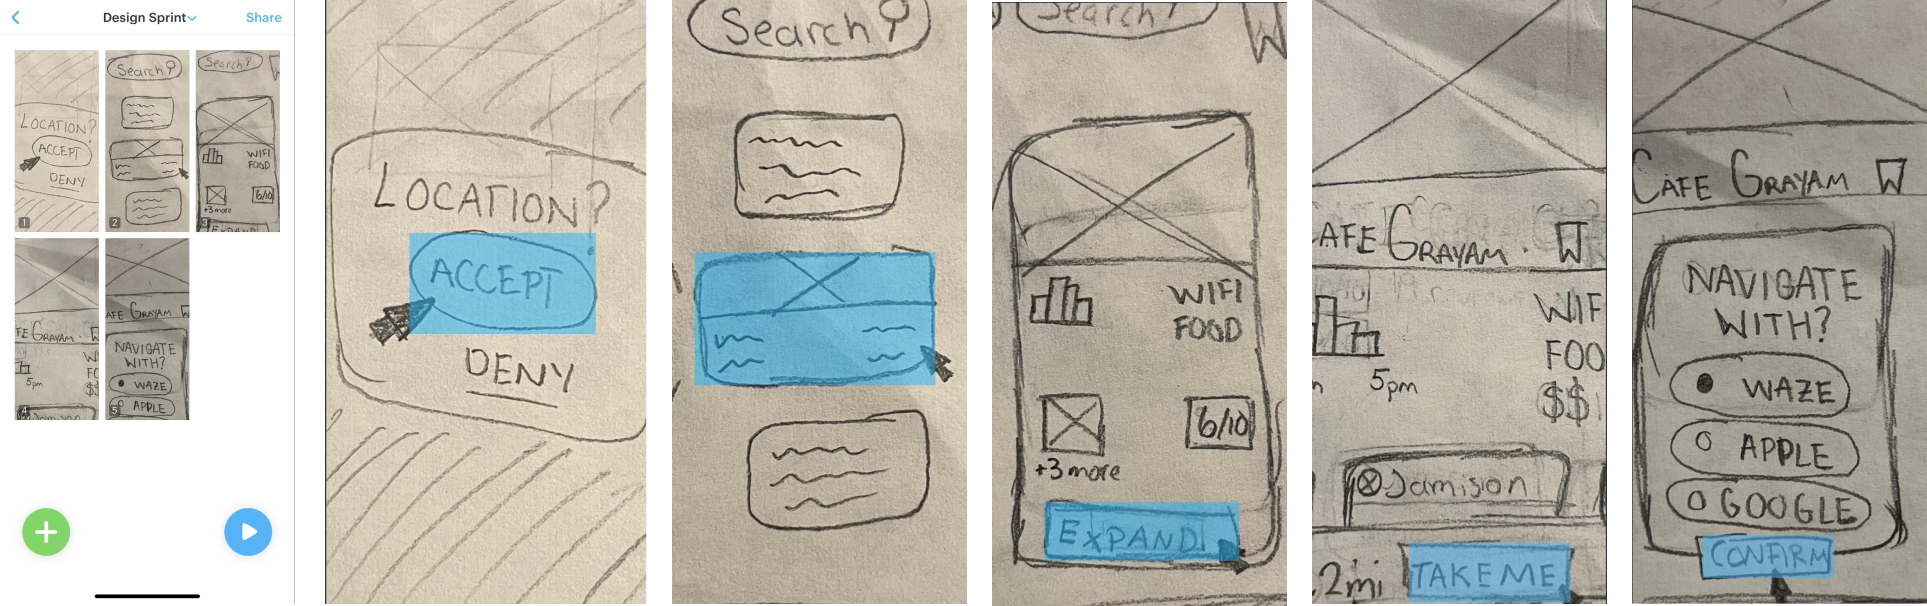 Design Sprint
Share
LOCATION?
ACCEPT
DENY
1
Search
2
Search
WIFI
FOOD
6/10
+3 more
EXPAND
3
FE GRAYAM
5pm
$$
Jamison
4
AFE GRAYAM
NAVIGATE
WITH?
WAZE
APPLE
5
LOCATION?
ACCEPT
DENY
Search
Search
WIFI
FOOD
6/10
+3 more
EXPAND
AFE GRAYAM
WIF
FOO
5pm
$$
Jamison
2mi
TAKE ME
CAFE GRAYAM
NAVIGATE
WITH?
WAZE
APPLE
GOOGLE
CONFIRM